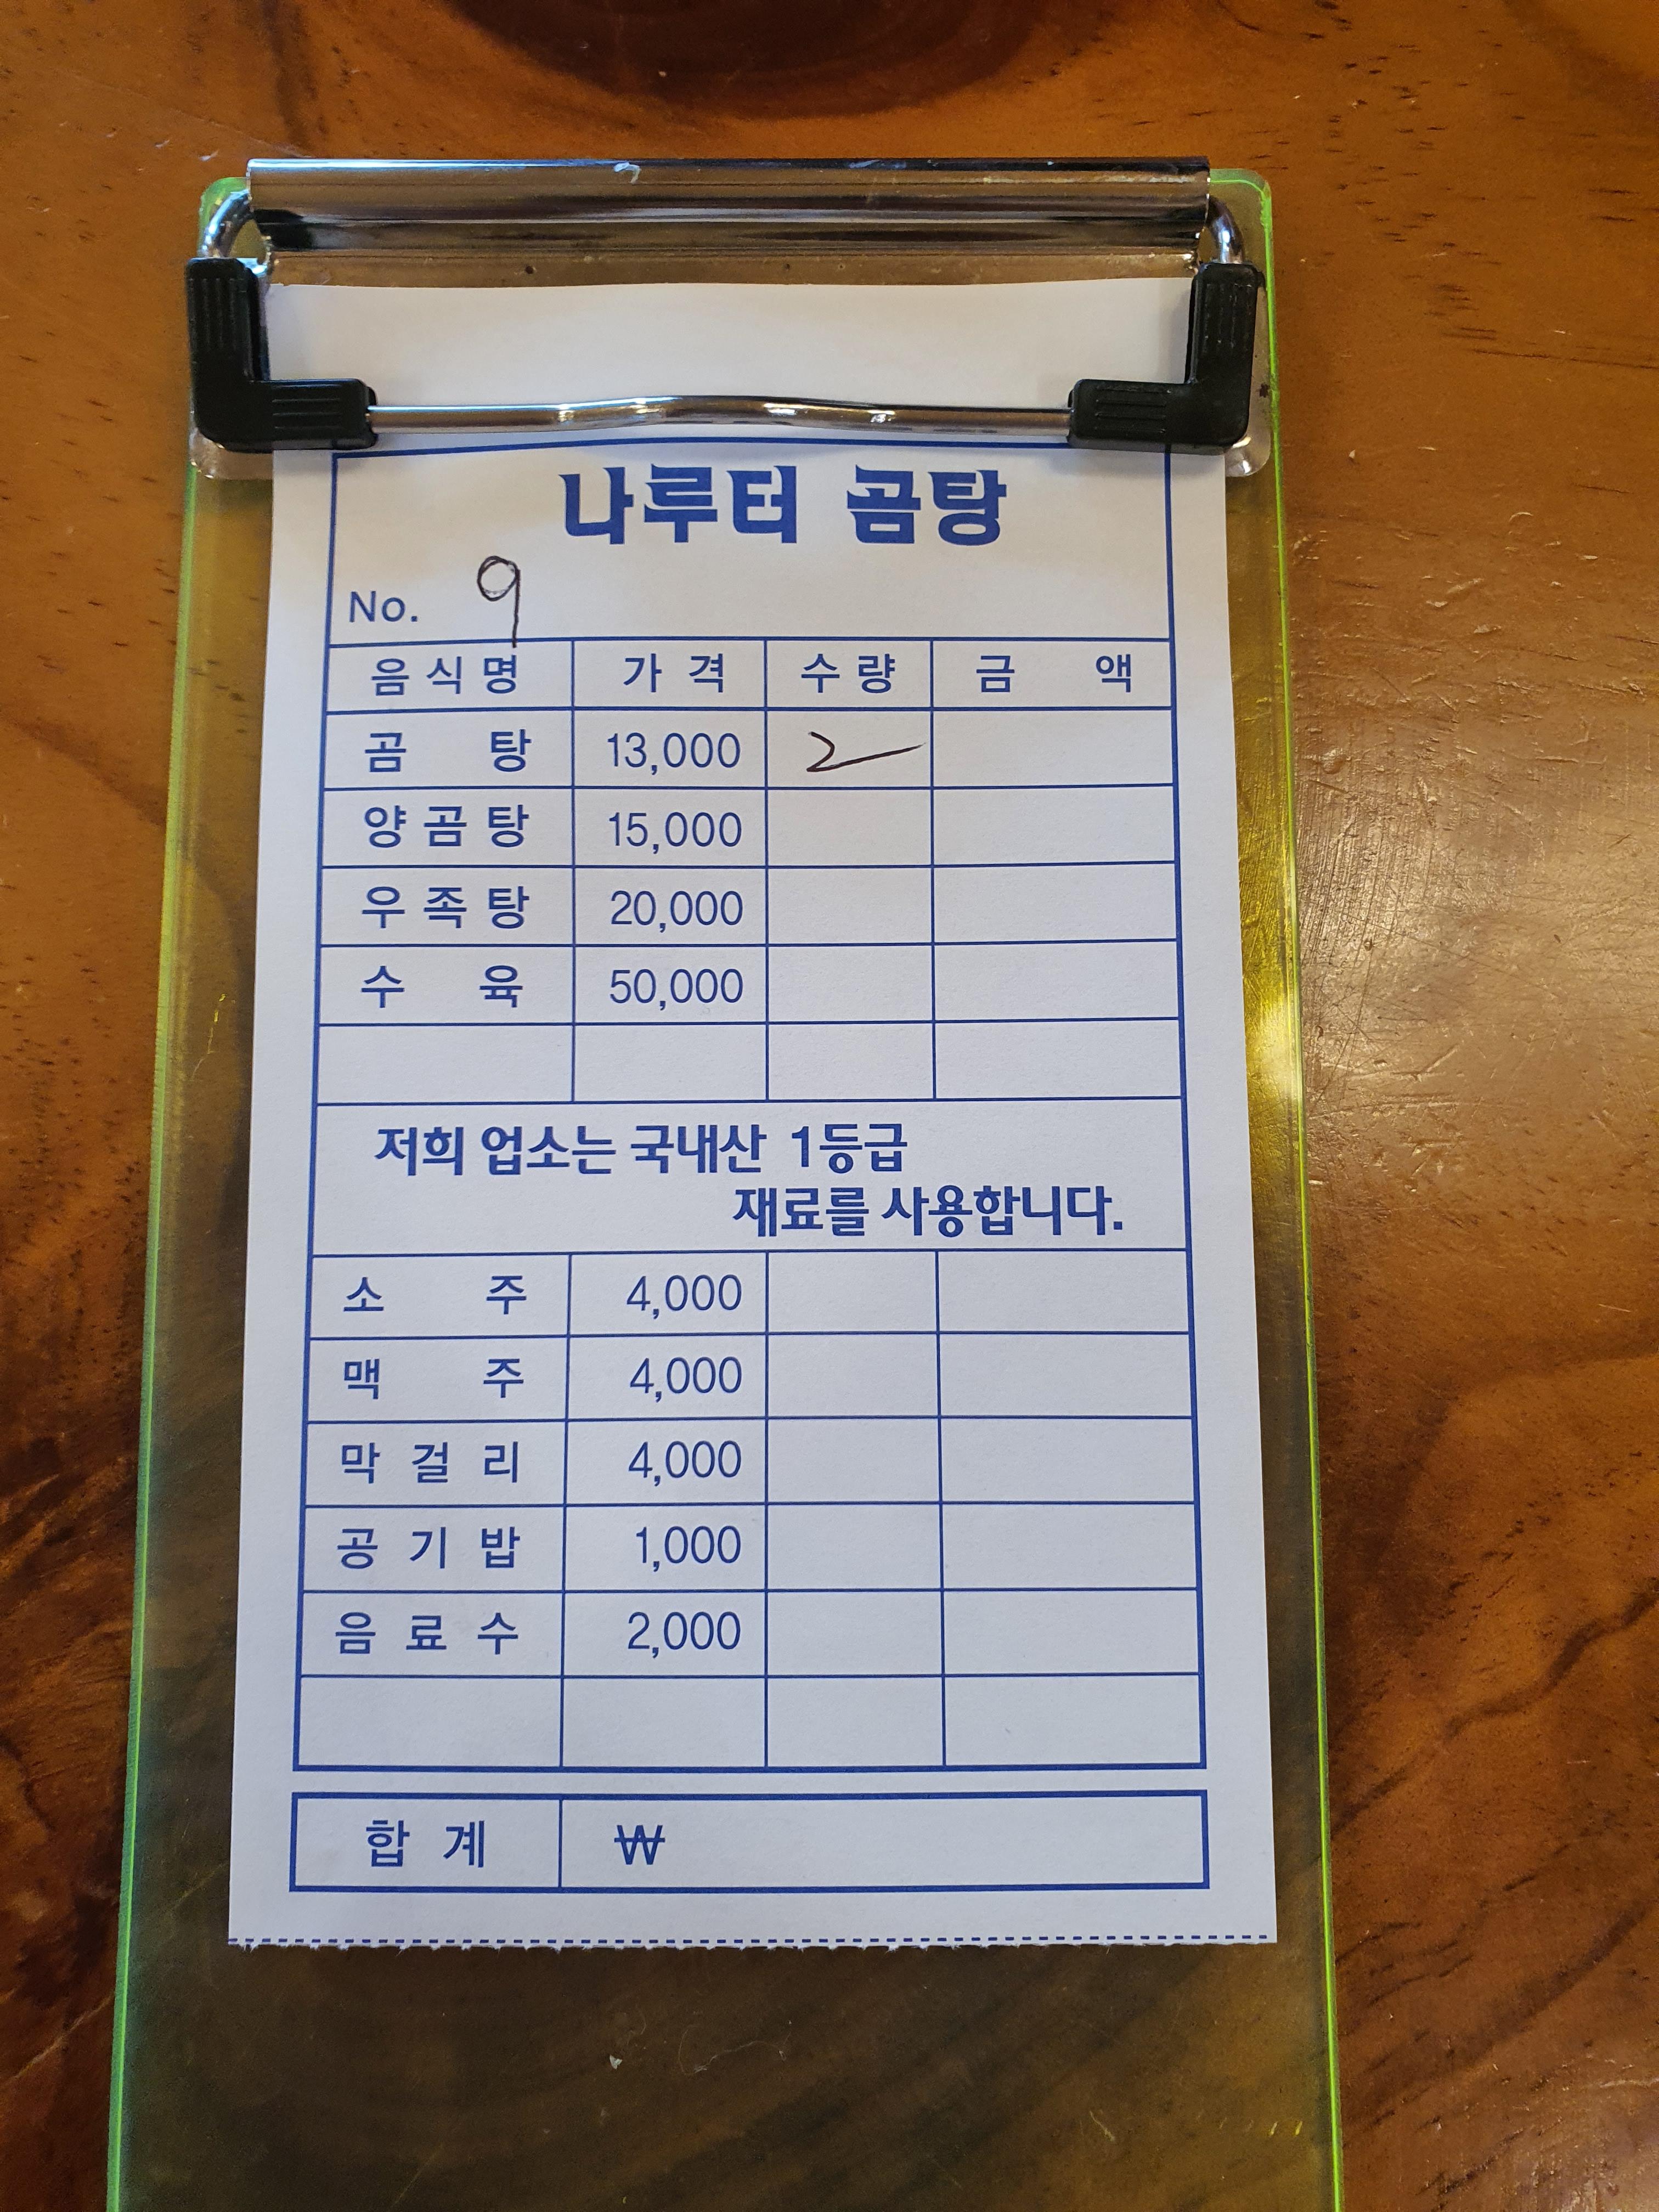 나루터 곰탕
No. 9
음식명 가격 수량 금액
곰탕 13,000 2
양곰탕 15,000
우족탕 20,000
수육 50,000
저희 업소는 국내산 1등급
재료를 사용합니다.
소주 4,000
맥주 4,000
막걸리 4,000
공기밥 1,000
음료수 2,000
합계 ₩